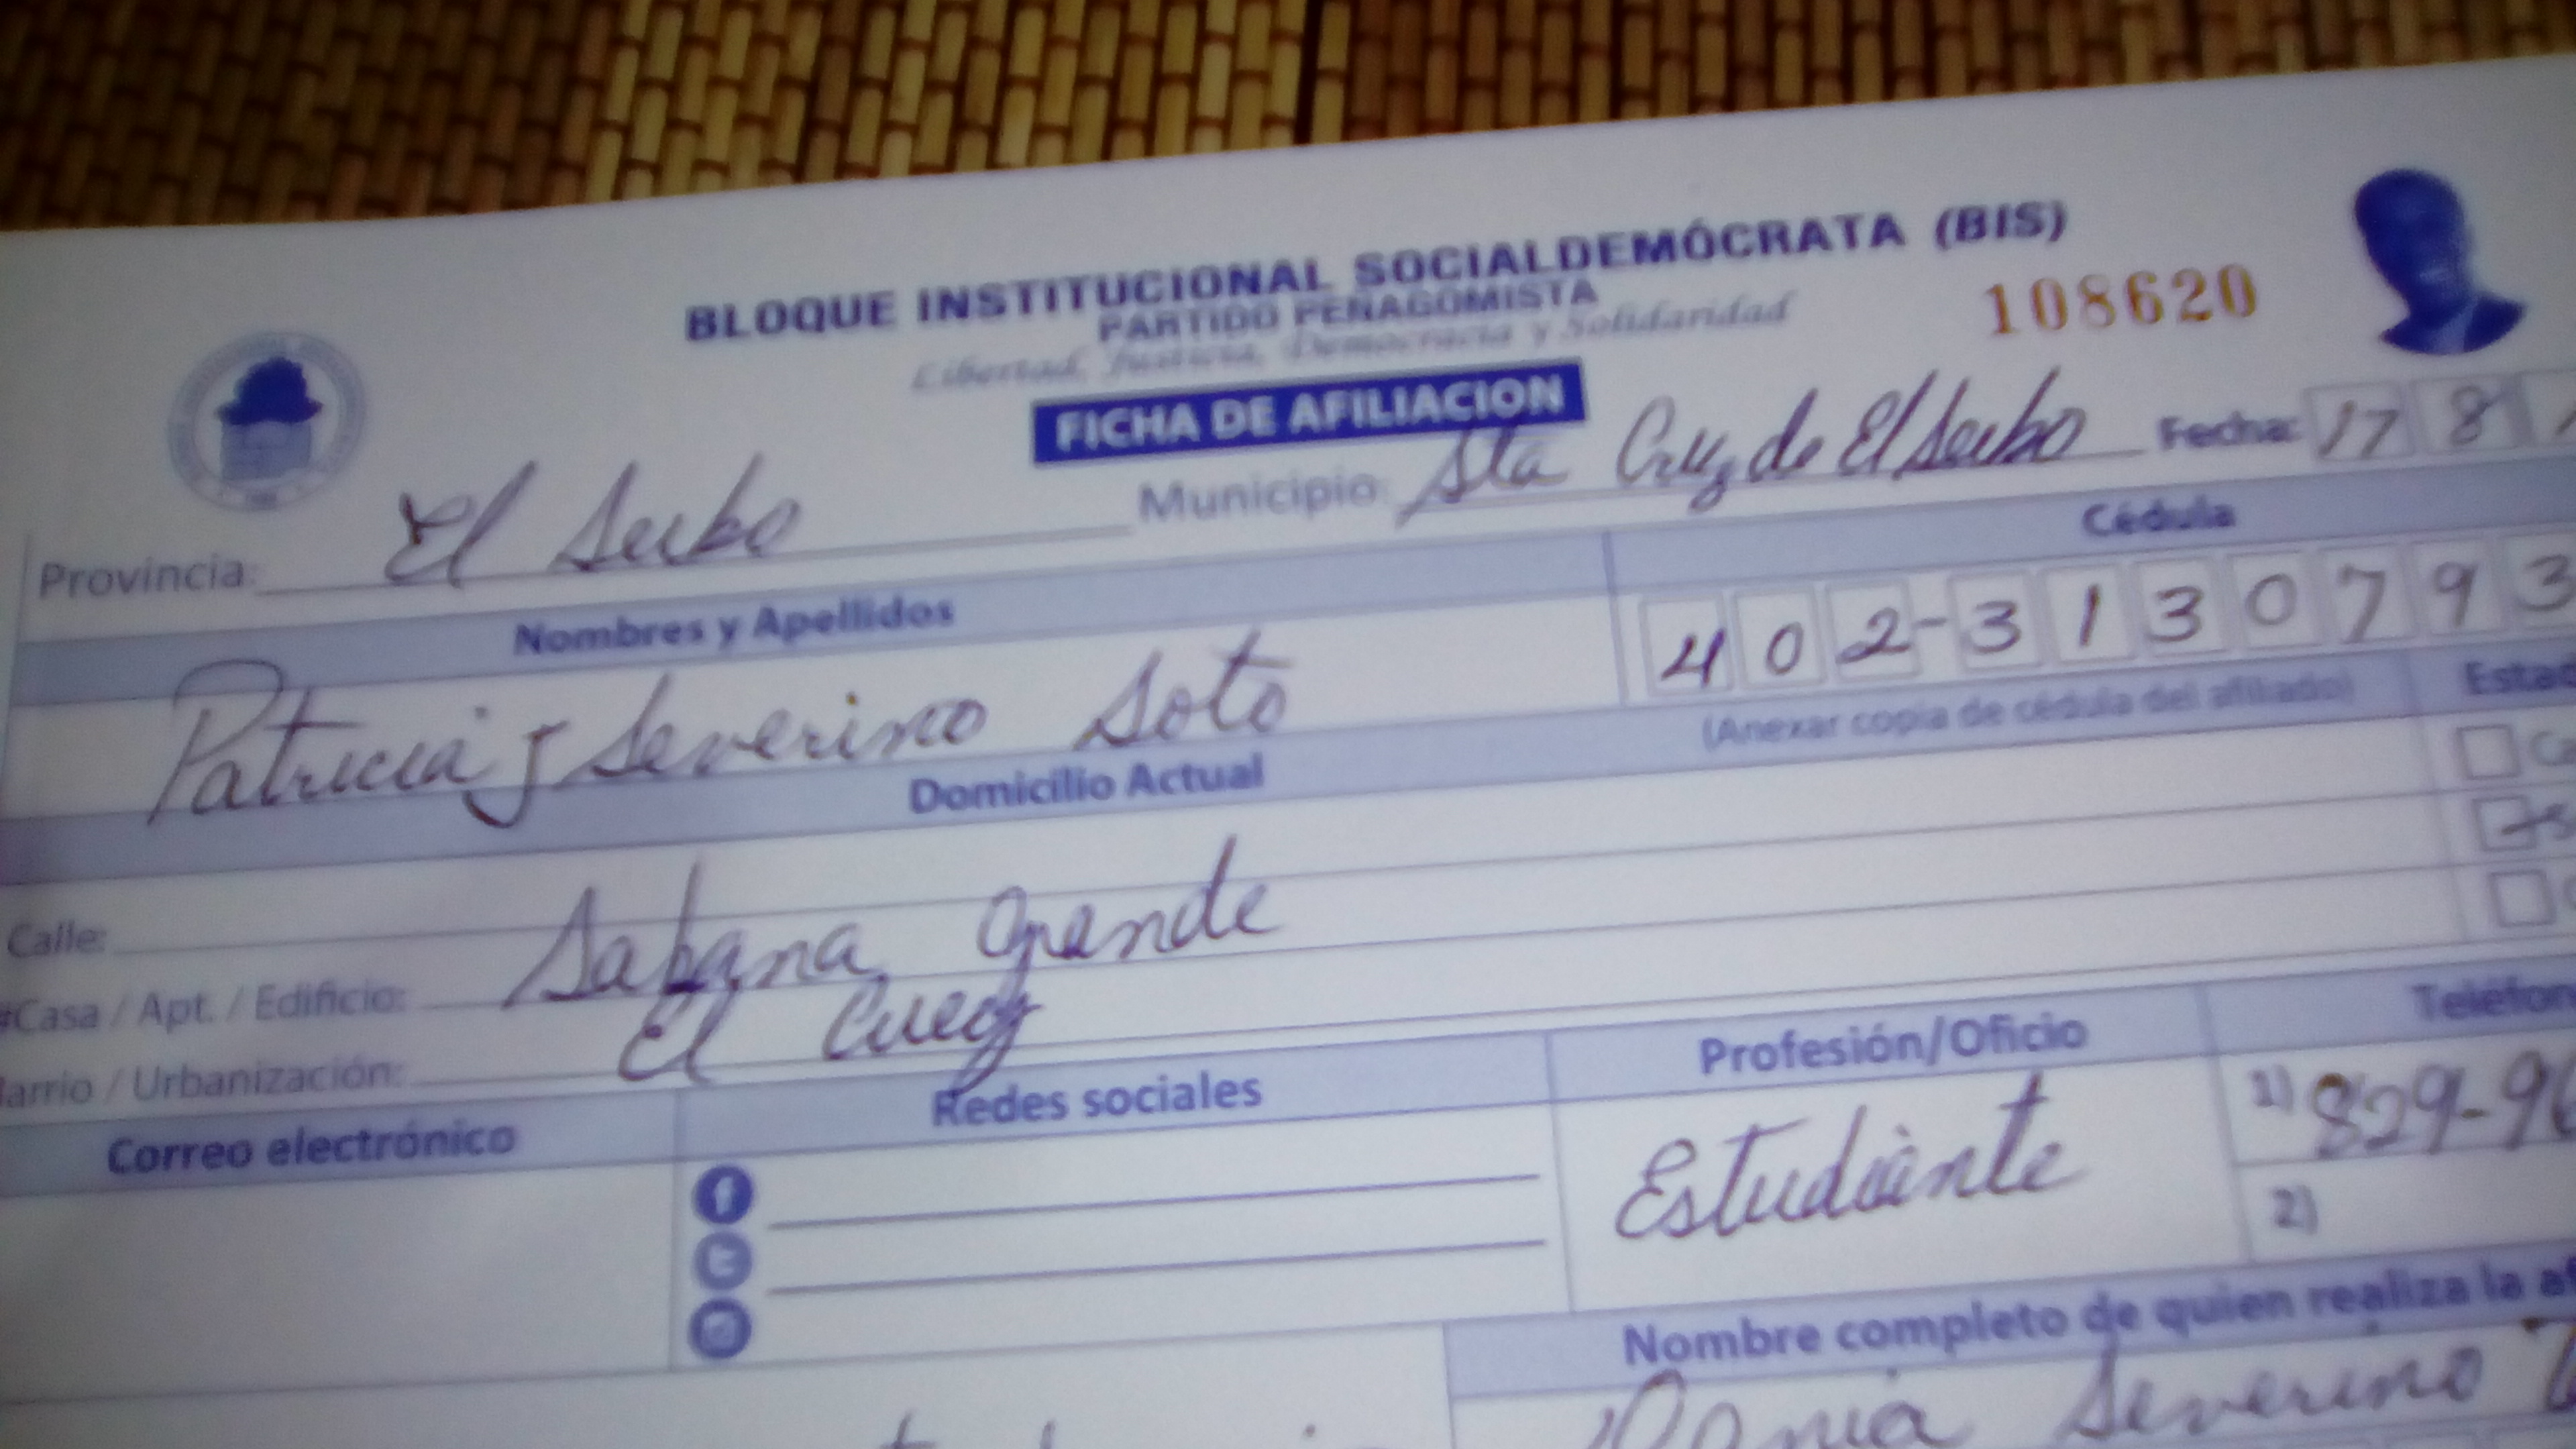 BLOQUE INSTITUCIONAL SOCIALDEMÓCRATA (BIS)
PARTIDO PEÑAGOMISTA
Libertad, Justicia, Democracia y Solidaridad
108620
FICHA DE AFILIACION
Provincia: El Seibo Municipio: Sta Cruz de El Seibo Fecha: 17 8
Nombres y Apellidos Cédula
Patricia J Severino Soto 402-3130793
(Anexar copia de cédula del afiliado)
Domicilio Actual
Calle:
#Casa / Apt. / Edificio: Sabana Grande
Barrio / Urbanización: El Cuey
Correo electrónico Redes sociales Profesión/Oficio
Estudiante
1) 829-9
2)
Nombre completo de quien realiza la
Severino